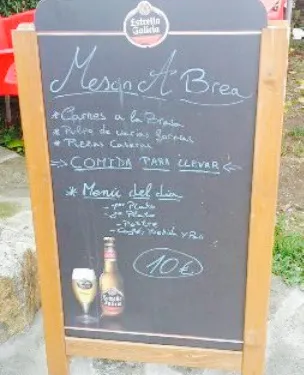 Estrella
Galicia
Mesón A Brea
* Carnes a la Brasa
* Pulpo de varias formas
* Pizzas Caseras
=> COMIDA PARA LLEVAR <=
* Menú del día
- 1er Plato
- 2º Plato
- Postre
- Café, Bebida y Pan
10€